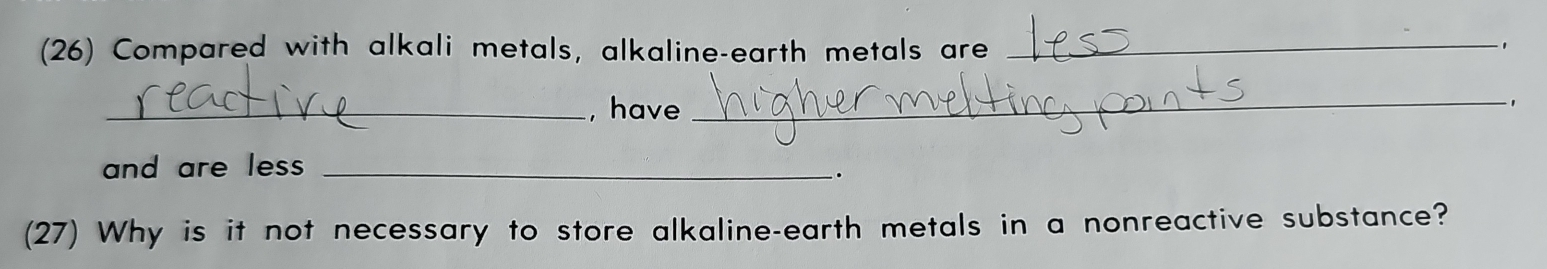 (26) Compared with alkali metals, alkaline-earth metals are less,
reactive, have higher melting points,
and are less .
(27) Why is it not necessary to store alkaline-earth metals in a nonreactive substance?